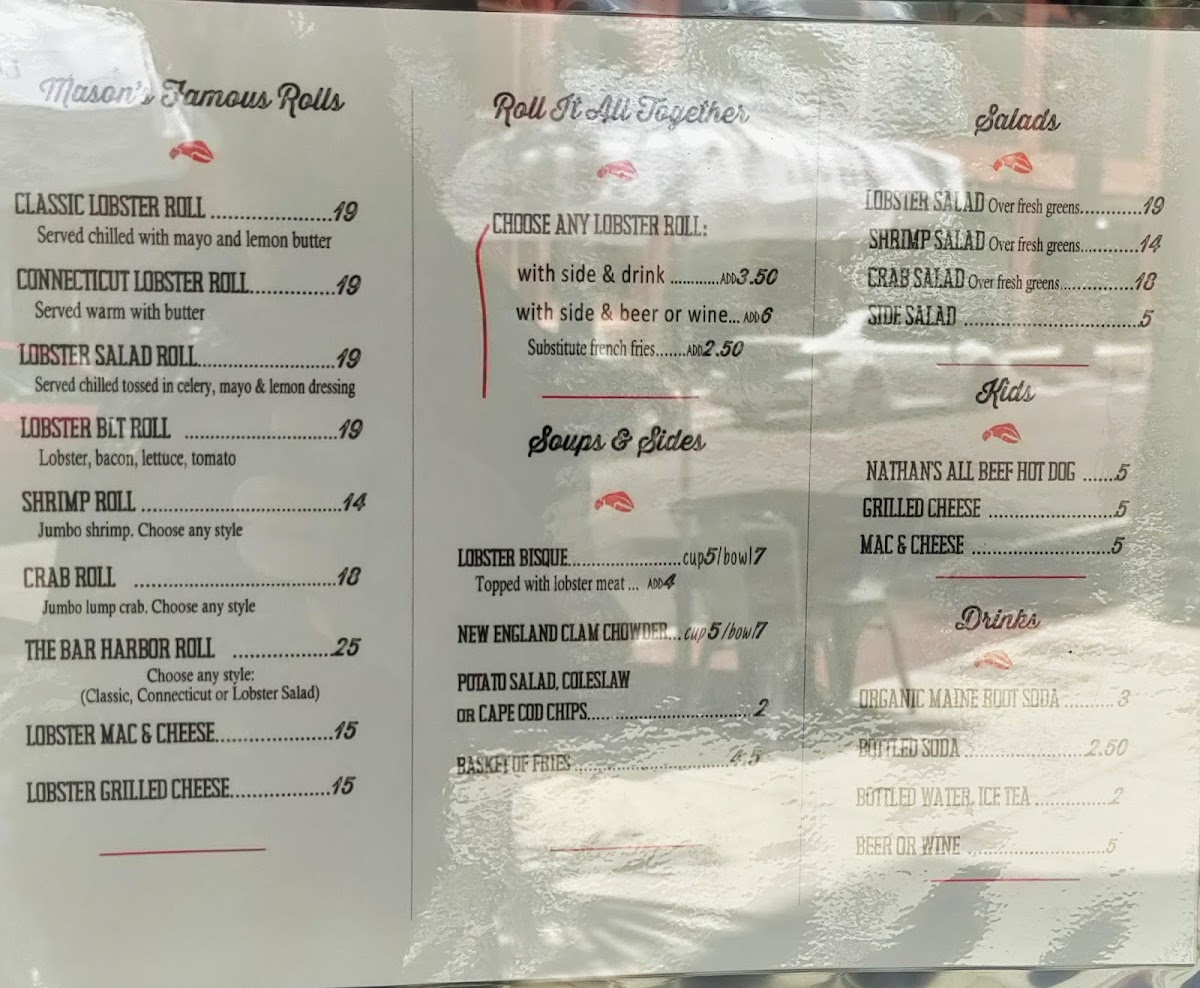 Mason's Famous Rolls
CLASSIC LOBSTER ROLL ....................19
Served chilled with mayo and lemon butter
CONNECTICUT LOBSTER ROLL..............19
Served warm with butter
LOBSTER SALAD ROLL.......................19
Served chilled tossed in celery, mayo & lemon dressing
LOBSTER BLT ROLL .........................19
Lobster, bacon, lettuce, tomato
SHRIMP ROLL .................................14
Jumbo shrimp. Choose any style
CRAB ROLL .................................18
Jumbo lump crab. Choose any style
THE BAR HARBOR ROLL ................25
Choose any style:
(Classic, Connecticut or Lobster Salad)
LOBSTER MAC & CHEESE...................15
LOBSTER GRILLED CHEESE................15
Roll It All Together
CHOOSE ANY LOBSTER ROLL:
with side & drink ............ADD3.50
with side & beer or wine... ADD6
Substitute french fries.......ADD2.50
Soups & Sides
LOBSTER BISQUE.......................cup5/bowl7
Topped with lobster meat ... ADD4
NEW ENGLAND CLAM CHOWDER...cup5/bowl7
POTATO SALAD, COLESLAW
OR CAPE COD CHIPS..................................2
BASKET OF FRIES ................................4.5
Salads
LOBSTER SALAD Over fresh greens............19
SHRIMP SALAD Over fresh greens............14
CRAB SALAD Over fresh greens...............18
SIDE SALAD ...................................5
Kids
NATHAN'S ALL BEEF HOT DOG ......5
GRILLED CHEESE ..........................5
MAC & CHEESE ............................5
Drinks
ORGANIC MAINE ROOT SODA ..........3
BOTTLED SODA ........................2.50
BOTTLED WATER, ICE TEA ...............2
BEER OR WINE ............................5